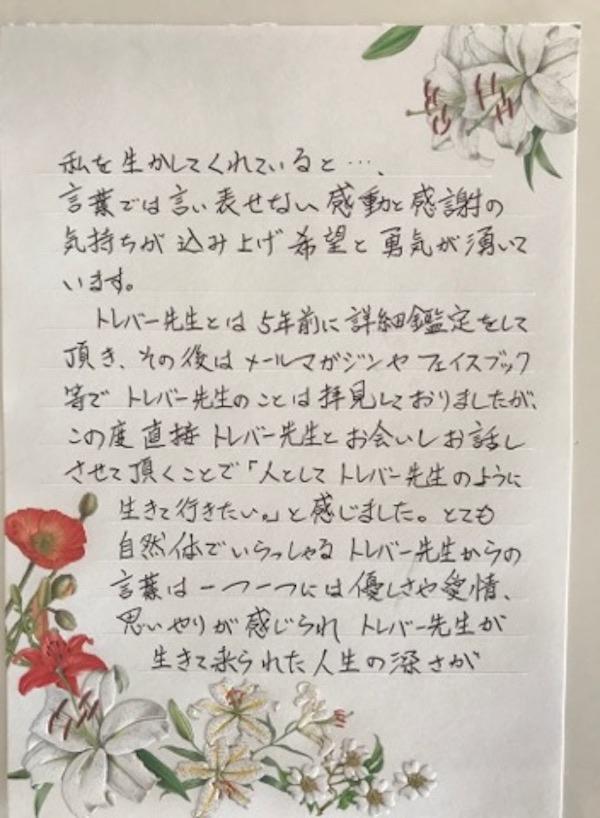 私を生かしてくれていると…、
言葉では言い表せない感動と感謝の
気持ちが込み上げ希望と勇気が湧いて
います。
トレバー先生とは5年前に詳細鑑定をして
頂き、その後はメールマガジンやフェイスブック
等でトレバー先生のことは拝見しておりましたが、
この度直接トレバー先生とお会いしお話し
させて頂くことで「人としてトレバー先生のように
生きて行きたい。」と感じました。とても
自然体でいらっしゃるトレバー先生からの
言葉は一つ一つには優しさや愛情、
思いやりが感じられトレバー先生が
生きて来られた人生の深さが